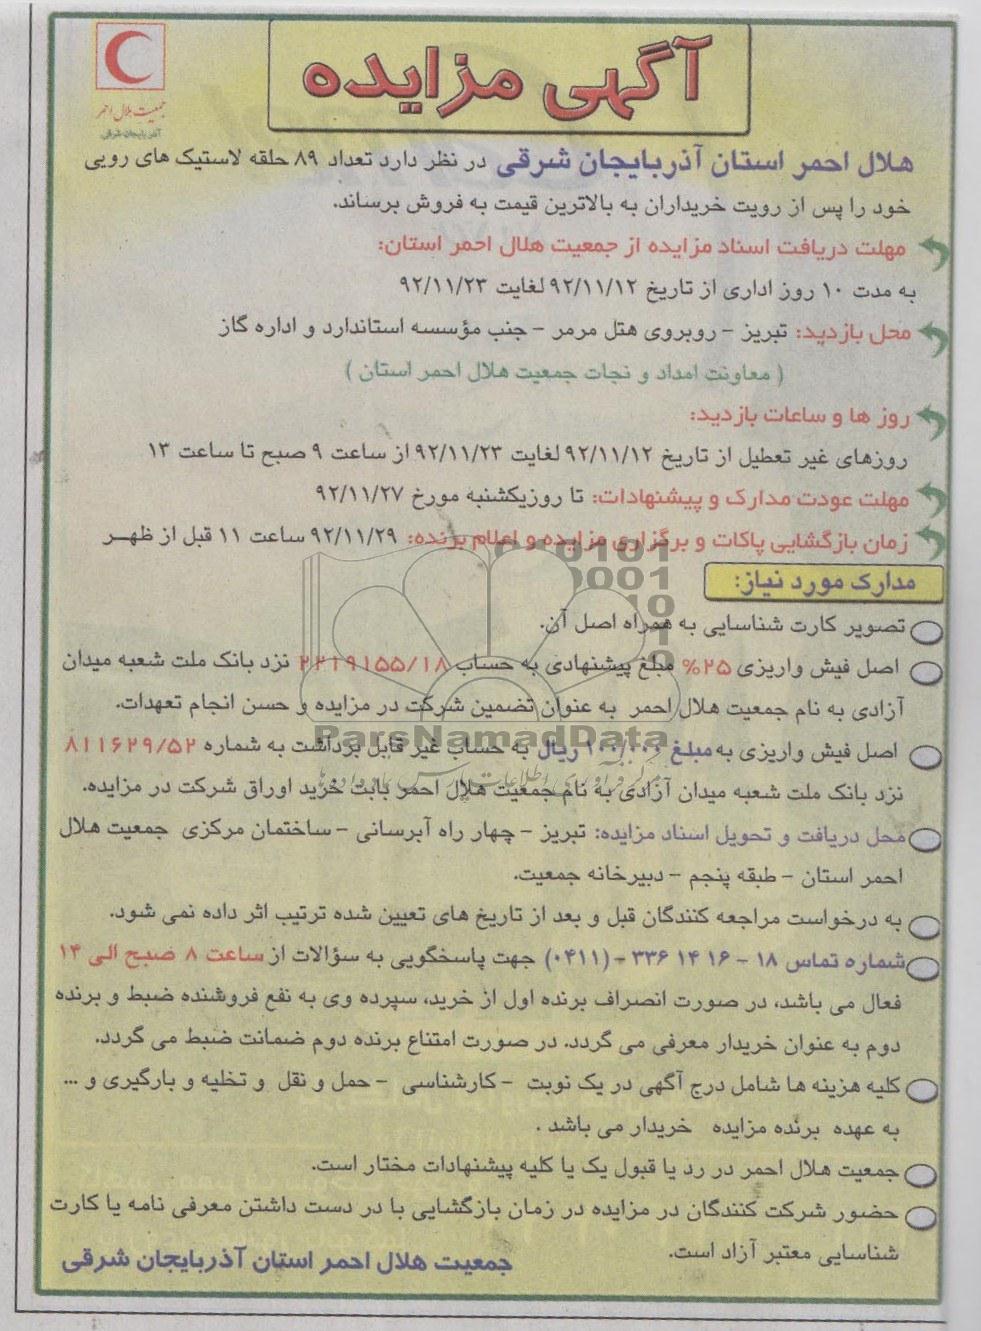 آگهی مزایده
جمعیت هلال احمر
آذربایجان شرقی
هلال احمر استان آذربایجان شرقی در نظر دارد تعداد ۸۹ حلقه لاستیک های رویی
خود را پس از رویت خریداران به بالاترین قیمت به فروش برساند.
مهلت دریافت اسناد مزایده از جمعیت هلال احمر استان:
به مدت ۱۰ روز اداری از تاریخ ۹۲/۱۱/۱۲ لغایت ۹۲/۱۱/۲۳
محل بازدید: تبریز - روبروی هتل مرمر - جنب مؤسسه استاندارد و اداره گاز
( معاونت امداد و نجات جمعیت هلال احمر استان )
روز ها و ساعات بازدید:
روزهای غیر تعطیل از تاریخ ۹۲/۱۱/۱۲ لغایت ۹۲/۱۱/۲۳ از ساعت ۹ صبح تا ساعت ۱۳
مهلت عودت مدارک و پیشنهادات: تا روزیکشنبه مورخ ۹۲/۱۱/۲۷
زمان بازگشایی پاکات و برگزاری مزایده و اعلام برنده: ۹۲/۱۱/۲۹ ساعت ۱۱ قبل از ظهر
مدارک مورد نیاز:
تصویر کارت شناسایی به همراه اصل آن.
اصل فیش واریزی ۲۵% مبلغ پیشنهادی به حساب ۲۲۱۹۱۵۵/۱۸ نزد بانک ملت شعبه میدان
آزادی به نام جمعیت هلال احمر به عنوان تضمین شرکت در مزایده و حسن انجام تعهدات.
اصل فیش واریزی به مبلغ ۱۰۰/۰۰۰ ریال به حساب غیر قابل برداشت به شماره ۸۱۱۶۲۹/۵۲
نزد بانک ملت شعبه میدان آزادی به نام جمعیت هلال احمر بابت خرید اوراق شرکت در مزایده.
محل دریافت و تحویل اسناد مزایده: تبریز - چهار راه آبرسانی - ساختمان مرکزی جمعیت هلال
احمر استان - طبقه پنجم - دبیرخانه جمعیت.
به درخواست مراجعه کنندگان قبل و بعد از تاریخ های تعیین شده ترتیب اثر داده نمی شود.
شماره تماس ۱۸ - ۱۶ ۱۴ ۳۳۶ - (۰۴۱۱) جهت پاسخگویی به سؤالات از ساعت ۸ صبح الی ۱۴
فعال می باشد، در صورت انصراف برنده اول از خرید، سپرده وی به نفع فروشنده ضبط و برنده
دوم به عنوان خریدار معرفی می گردد. در صورت امتناع برنده دوم ضمانت ضبط می گردد.
کلیه هزینه ها شامل درج آگهی در یک نوبت - کارشناسی - حمل و نقل و تخلیه و بارگیری و ...
به عهده برنده مزایده خریدار می باشد .
جمعیت هلال احمر در رد یا قبول یک یا کلیه پیشنهادات مختار است.
حضور شرکت کنندگان در مزایده در زمان بازگشایی با در دست داشتن معرفی نامه یا کارت
شناسایی معتبر آزاد است.
جمعیت هلال احمر استان آذربایجان شرقی
ParsNamadData